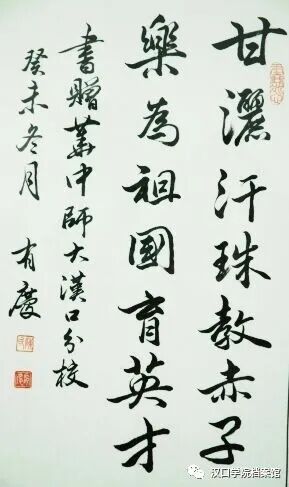 甘灑汗珠教赤子
樂為祖國育英才
書贈華中師大漢口分校
癸未冬月 有慶
汉口学院档案馆